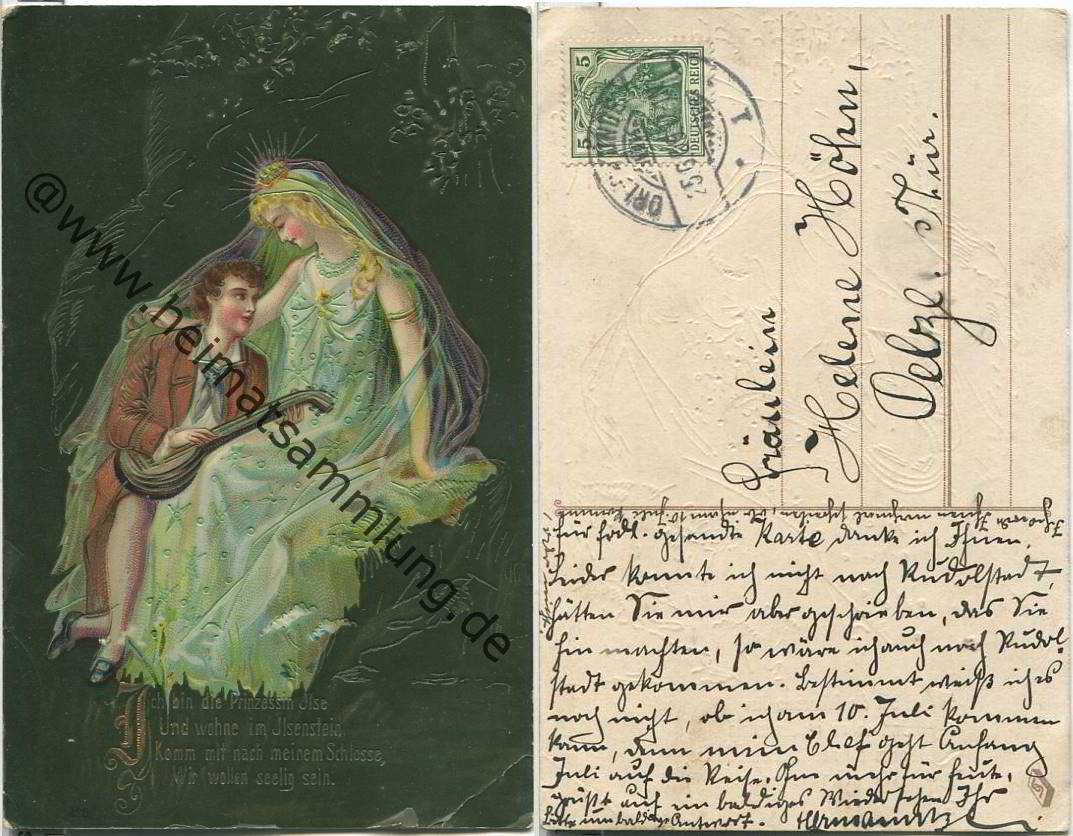 @www.heimatsammlung.de
Ich bin die Prinzessin Ilse
Und wohne im Ilsenstein
Komm mit nach meinem Schlosse,
Wir wollen seelig sein.
5 5
DEUTSCHES REICH
Fräulein
Helene Höhn,
Oelze. Thür.
für frdl. gesandte Karte danke ich Ihnen,
leider konnte ich nicht nach Rudolstadt,
hätten Sie mir aber geschrieben, das Sie
hin machten, so wäre ich auch nach Rudol-
stadt gekommen. Bestimmt weiß ich es
noch nicht, ob ich am 10. Juli kommen
kann, denn mein Chef geht Anfang
Juli auf die Reise. Nun mehr für heute,
grüßt auf ein baldiges Wiedersehen Ihr
Bitte um baldige Antwort. Hermann